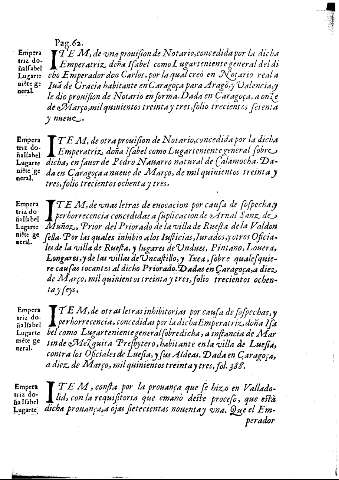 Pag.62.
Empera
triz do-
ñaIsabel
Lugarte
niẽte ge
neral.
ITEM, de vna prouision de Notario, concedida por la dicha
Emperatriz, doña Isabel como Lugarteniente general del di
cho Emperador don Carlos, por la qual creó en Notario real a
Iuã de Gracia habitante en Caragoça para Aragõ y Valencia, y
le dio prouision de Notario en forma. Dada en Caragoça, a onze
de Março, mil quinientos treinta y tres, folio trecientos, setenta
y nueue.
Empera
triz do-
ñaIsabel
Lugarte
niẽte ge
neral.
ITEM, de otra prouision de Notario, concedida por la dicha
Emperatriz, doña Isabel como Lugarteniente general sobre
dicha, en fauor de Pedro Nauarro natural de Calamocha. Da-
da en Caragoça a nueue de Março, de mil quinientos treinta y
tres, folio trecientos ochenta y tres.
Empera
triz do-
ñaIsabel
Lugarte
niẽte ge
neral.
ITEM, de vnas letras de euocacion por causa de sospecha, y
perhorrecencia concedidas a suplicacion de Arnal Sanz, de
Muñoz, Prior del Priorado de la villa de Ruesta de la Valdon
sella. Por las quales inhibio a los Iusticias, Iurados, y otros Oficia-
les de la villa de Ruesta, y lugares de Vndues, Pintano, Louera,
Longares, y de las villas de Vncastillo, y Ysea, sobre qualesquie-
re causas tocantes al dicho Priorado. Dadas en Caragoça, a diez,
de Março, mil quinientos treinta y tres, folio trecientos ochen-
ta y seys.
Empera
triz do-
ñaIsabel
Lugarte
niẽte ge
neral.
ITEM, de otras letras inhibitorias por causa de sospechas, y
perhorrecencia, concedidas por la dicha Emperatriz, doña Isa
bel como Lugarteniente general sobredicha, a instancia de Mar
tin de Mezquita Presbytero, habitante en la villa de Luesia,
contra los Oficiales de Luesia, y sus Aldeas. Dada en Caragoça,
a diez, de Março, mil quinientos treinta y tres, fol. 388.
Empera
triz do-
ñaIsabel
Lugarte
ITEM, consta por la prouança que se hizo en Vallado-
lid, con la requisitoria que emanò deste proceso, que està
dicha prouança, a ojas sietecientas nouenta y vna. Que el Em-
perador